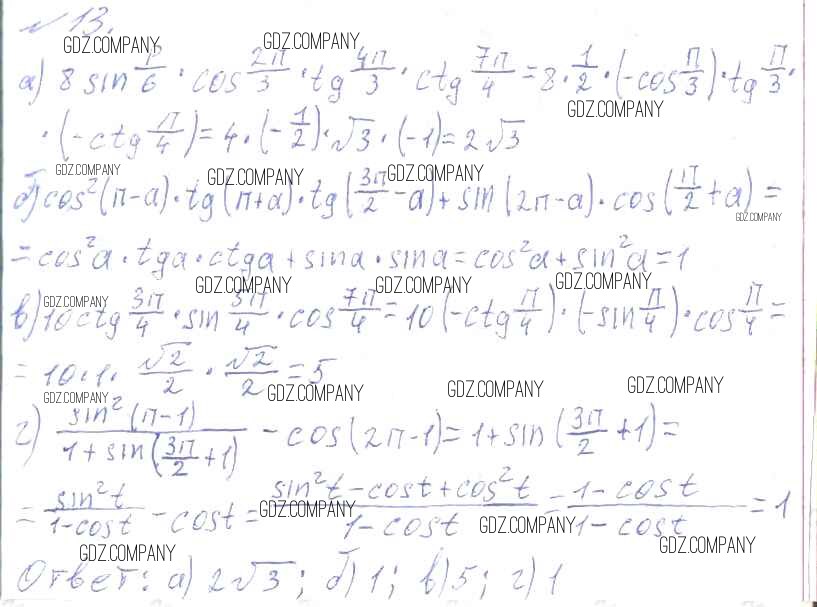 № 13.
GDZ.COMPANY GDZ.COMPANY
а) 8 sin π/6 · cos 2π/3 · tg 4π/3 · ctg 7π/4 = 8 · 1/2 · (-cos π/3) · tg π/3 ·
GDZ.COMPANY
· (-ctg π/4) = 4 · (-1/2) · √3 · (-1) = 2√3
GDZ.COMPANY GDZ.COMPANY GDZ.COMPANY
б) cos²(π-a) · tg(π+a) · tg(3π/2 - a) + sin(2π-a) · cos(π/2 + a) =
GDZ.COMPANY
= cos²a · tga · ctga + sina · sina = cos²a + sin²a = 1
GDZ.COMPANY GDZ.COMPANY GDZ.COMPANY GDZ.COMPANY
в) 10 ctg 3π/4 · sin 5π/4 · cos 7π/4 = 10 (-ctg π/4) · (-sin π/4) · cos π/4 =
= 10 · 1 · √2/2 · √2/2 = 5
GDZ.COMPANY GDZ.COMPANY GDZ.COMPANY GDZ.COMPANY
г) sin²(π-1)/(1+sin(3π/2 + 1)) - cos(2π-1) = 1+sin(3π/2 + 1) =
= sin²t/(1-cost) - cost = (sin²t - cost + cos²t)/(1-cost) = (1-cost)/(1-cost) = 1
GDZ.COMPANY GDZ.COMPANY GDZ.COMPANY
GDZ.COMPANY
Ответ: а) 2√3; б) 1; в) 5; г) 1